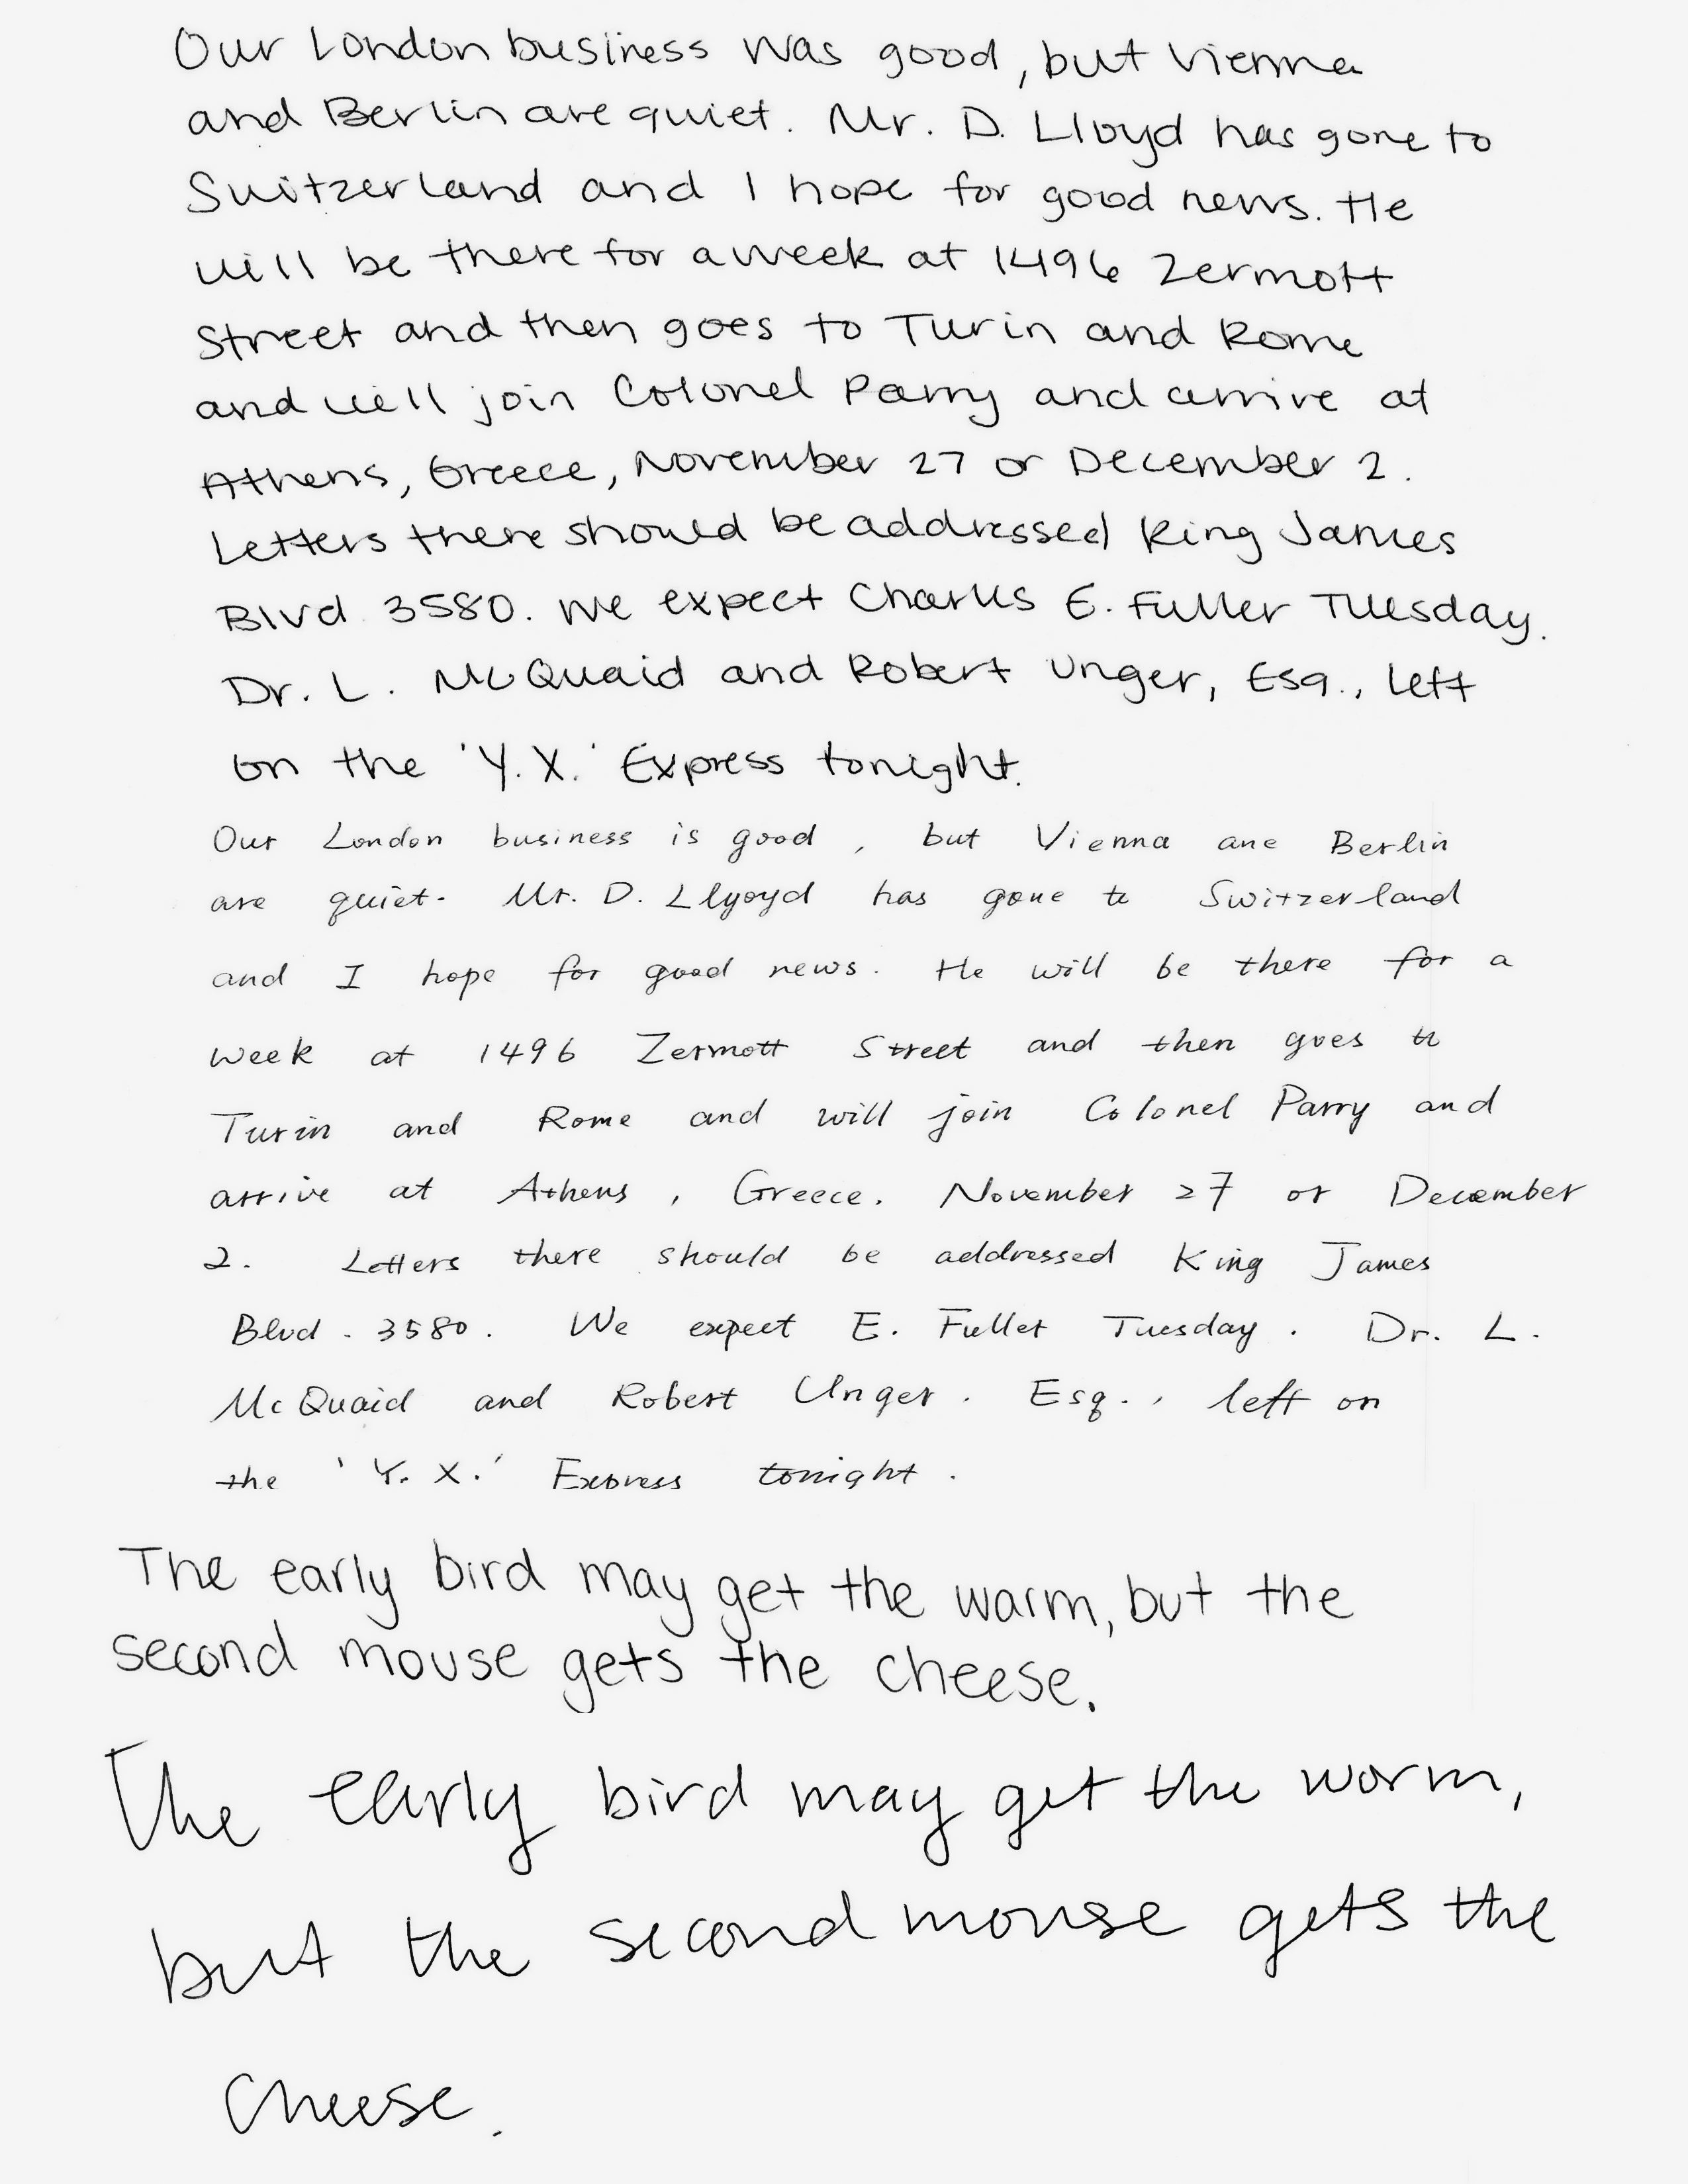 Our London business was good, but Vienna
and Berlin are quiet. Mr. D. Lloyd has gone to
Switzerland and I hope for good news. He
will be there for a week at 1496 Zermott
Street and then goes to Turin and Rome
and will join Colonel Parry and arrive at
Athens, Greece, November 27 or December 2.
Letters there should be addressed King James
Blvd 3580. We expect Charles E. Fuller Tuesday.
Dr. L. McQuaid and Robert Unger, Esq., left
on the 'Y.X.' Express tonight.
Our London business is good, but Vienna ane Berlin
are quiet. Mr. D. Llyoyd has gone to Switzerland
and I hope for good news. He will be there for a
week at 1496 Zermott Street and then goes to
Turin and Rome and will join Colonel Parry and
arrive at Athens, Greece. November 27 or December
2. Letters there should be addressed King James
Blvd. 3580. We expect E. Fuller Tuesday. Dr. L.
McQuaid and Robert Unger. Esq., left on
the 'Y. X.' Express tonight.
The early bird may get the warm, but the
second mouse gets the cheese.
The early bird may get the worm,
but the second mouse gets the
cheese.